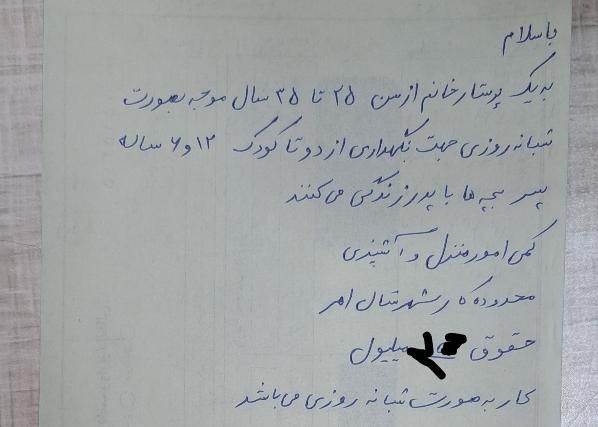 با سلام
به یک پرستار خانم از سن ۲۵ تا ۳۵ سال موجه بصورت
شبانه روزی جهت نگهداری از دو تا کودک ۱۲ و ۶ ساله
پسر بچه ها با پدر زندگی می کنند
کمی امور منزل و آشپزی
محدوده کار شهر شمال
حقوق میلیون
کار به صورت شبانه روزی می باشد